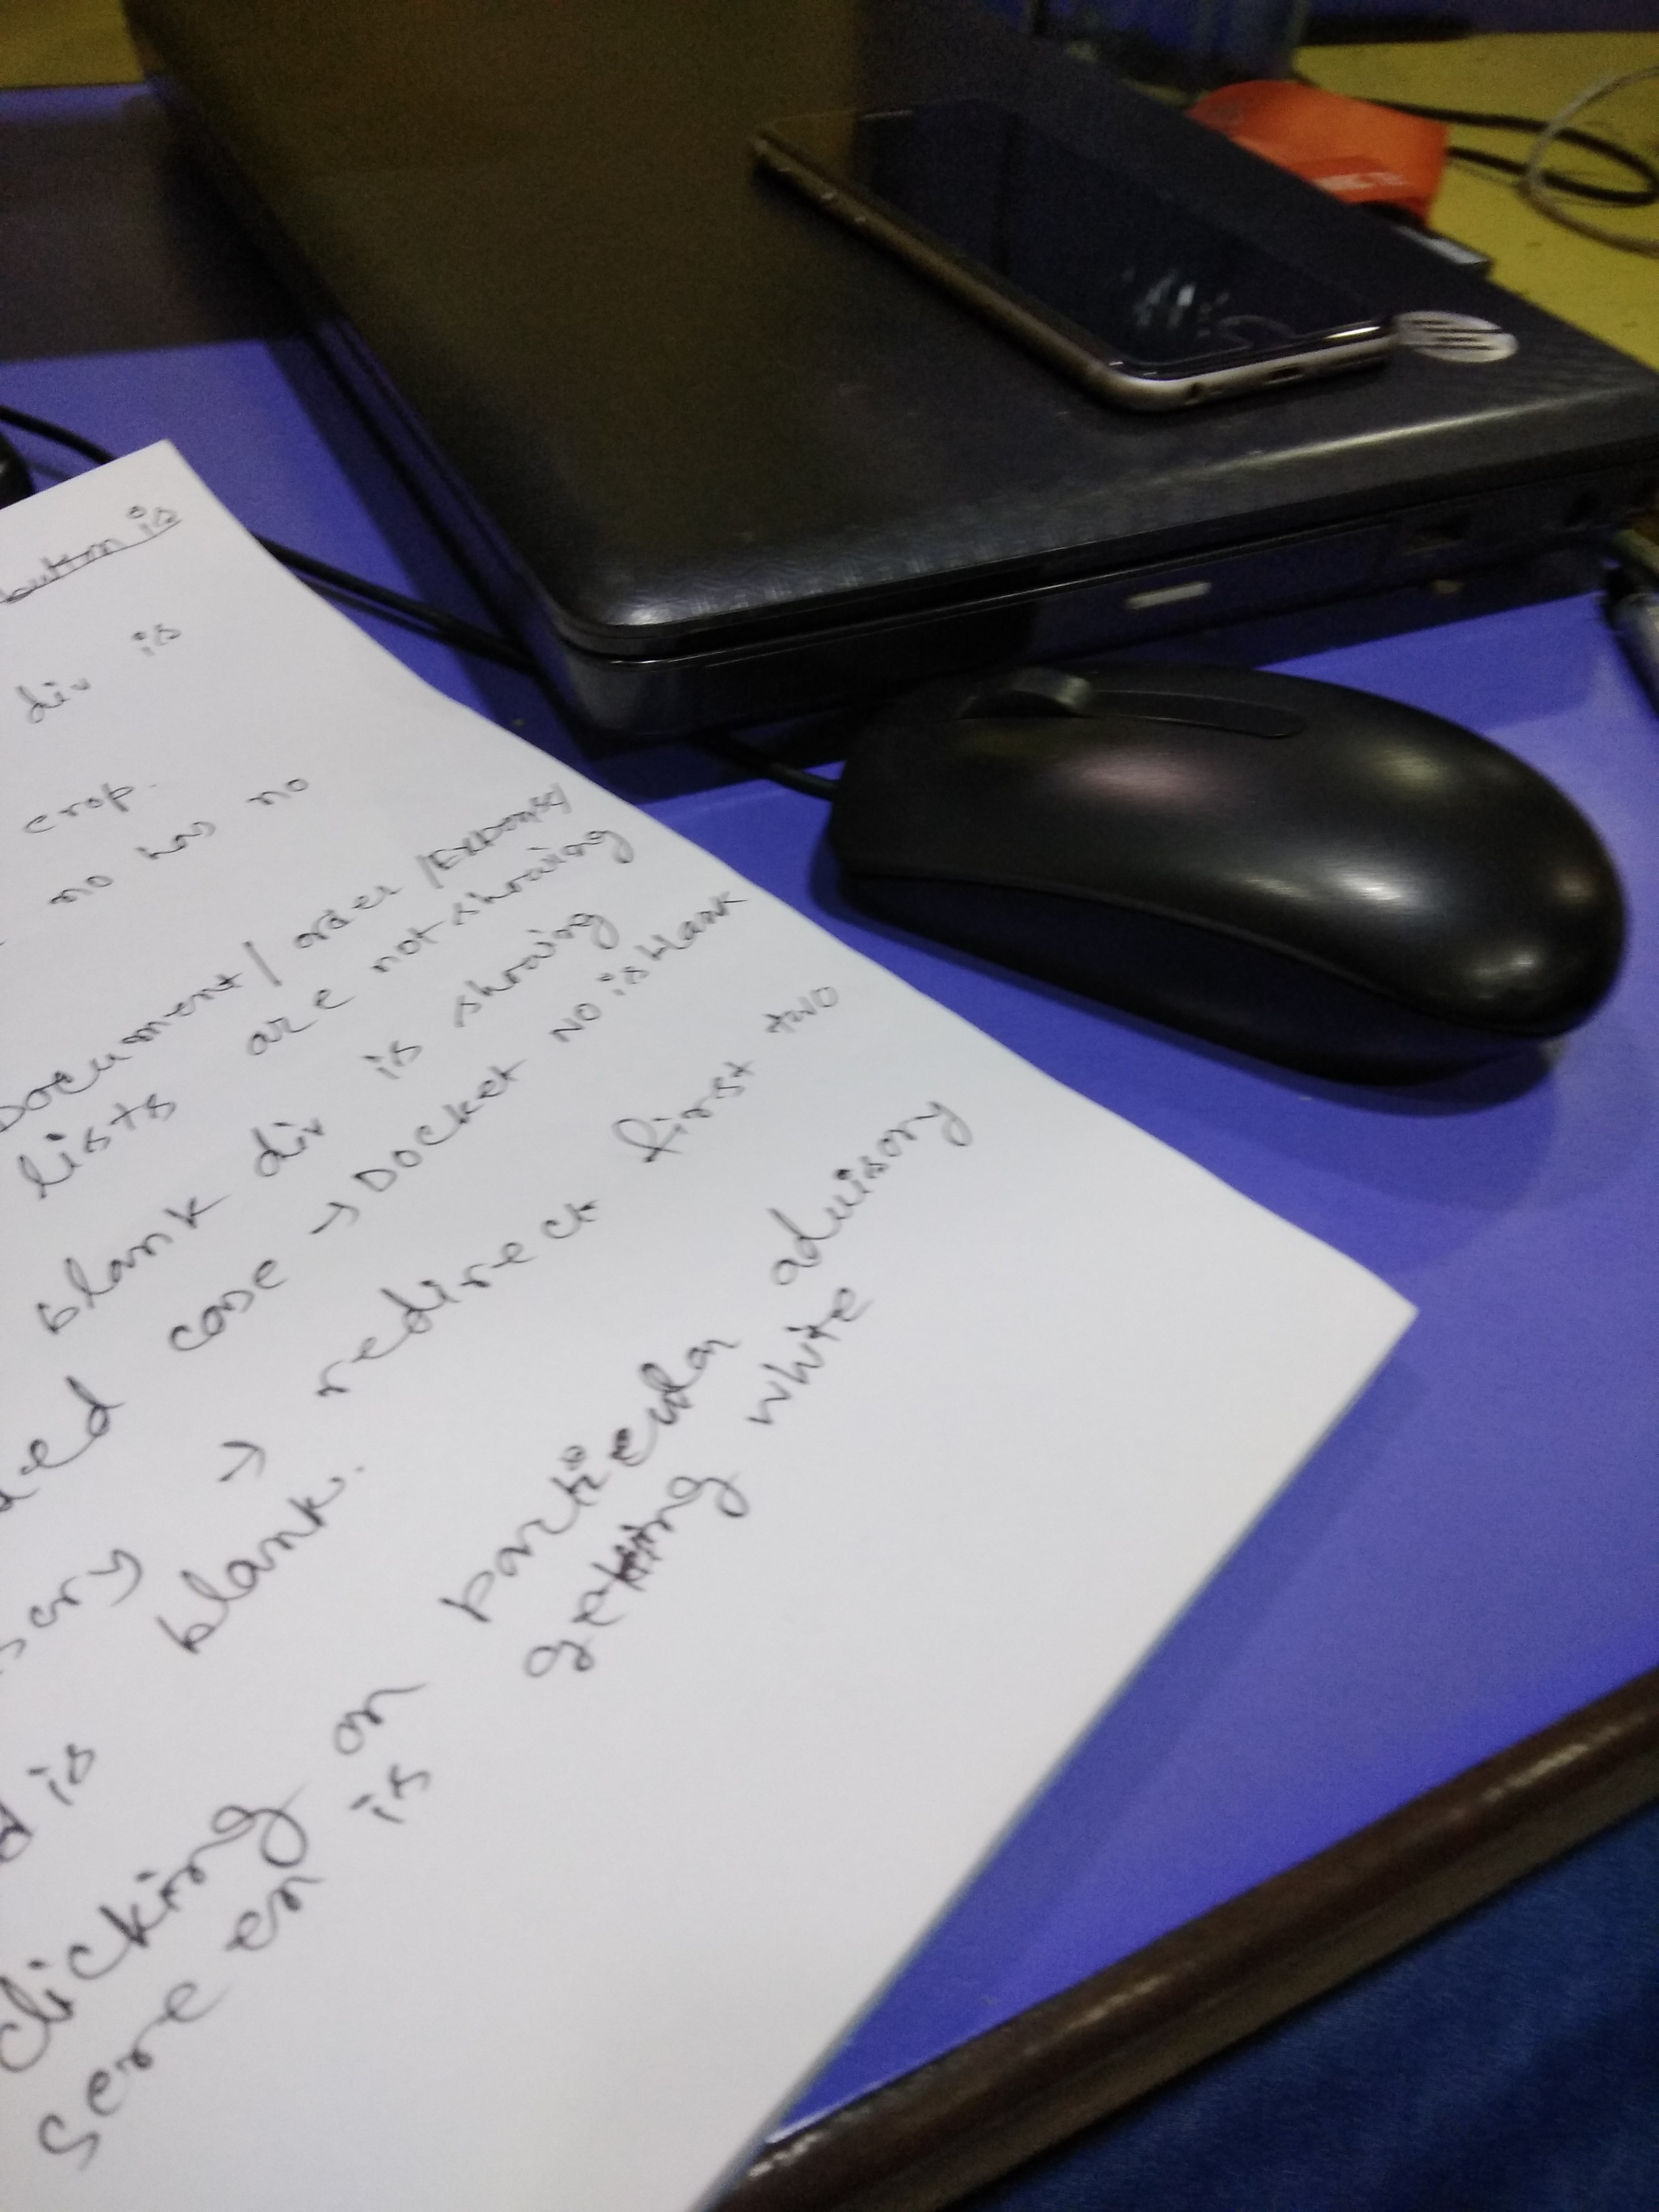 button is
div is
crop.
no has no
Document / order / Expense
lists are not showing
blank div is showing
case → Docket NO is blank
→ redirect first two
blank.
is
clicking on particular advisory
screen is getting white
hp